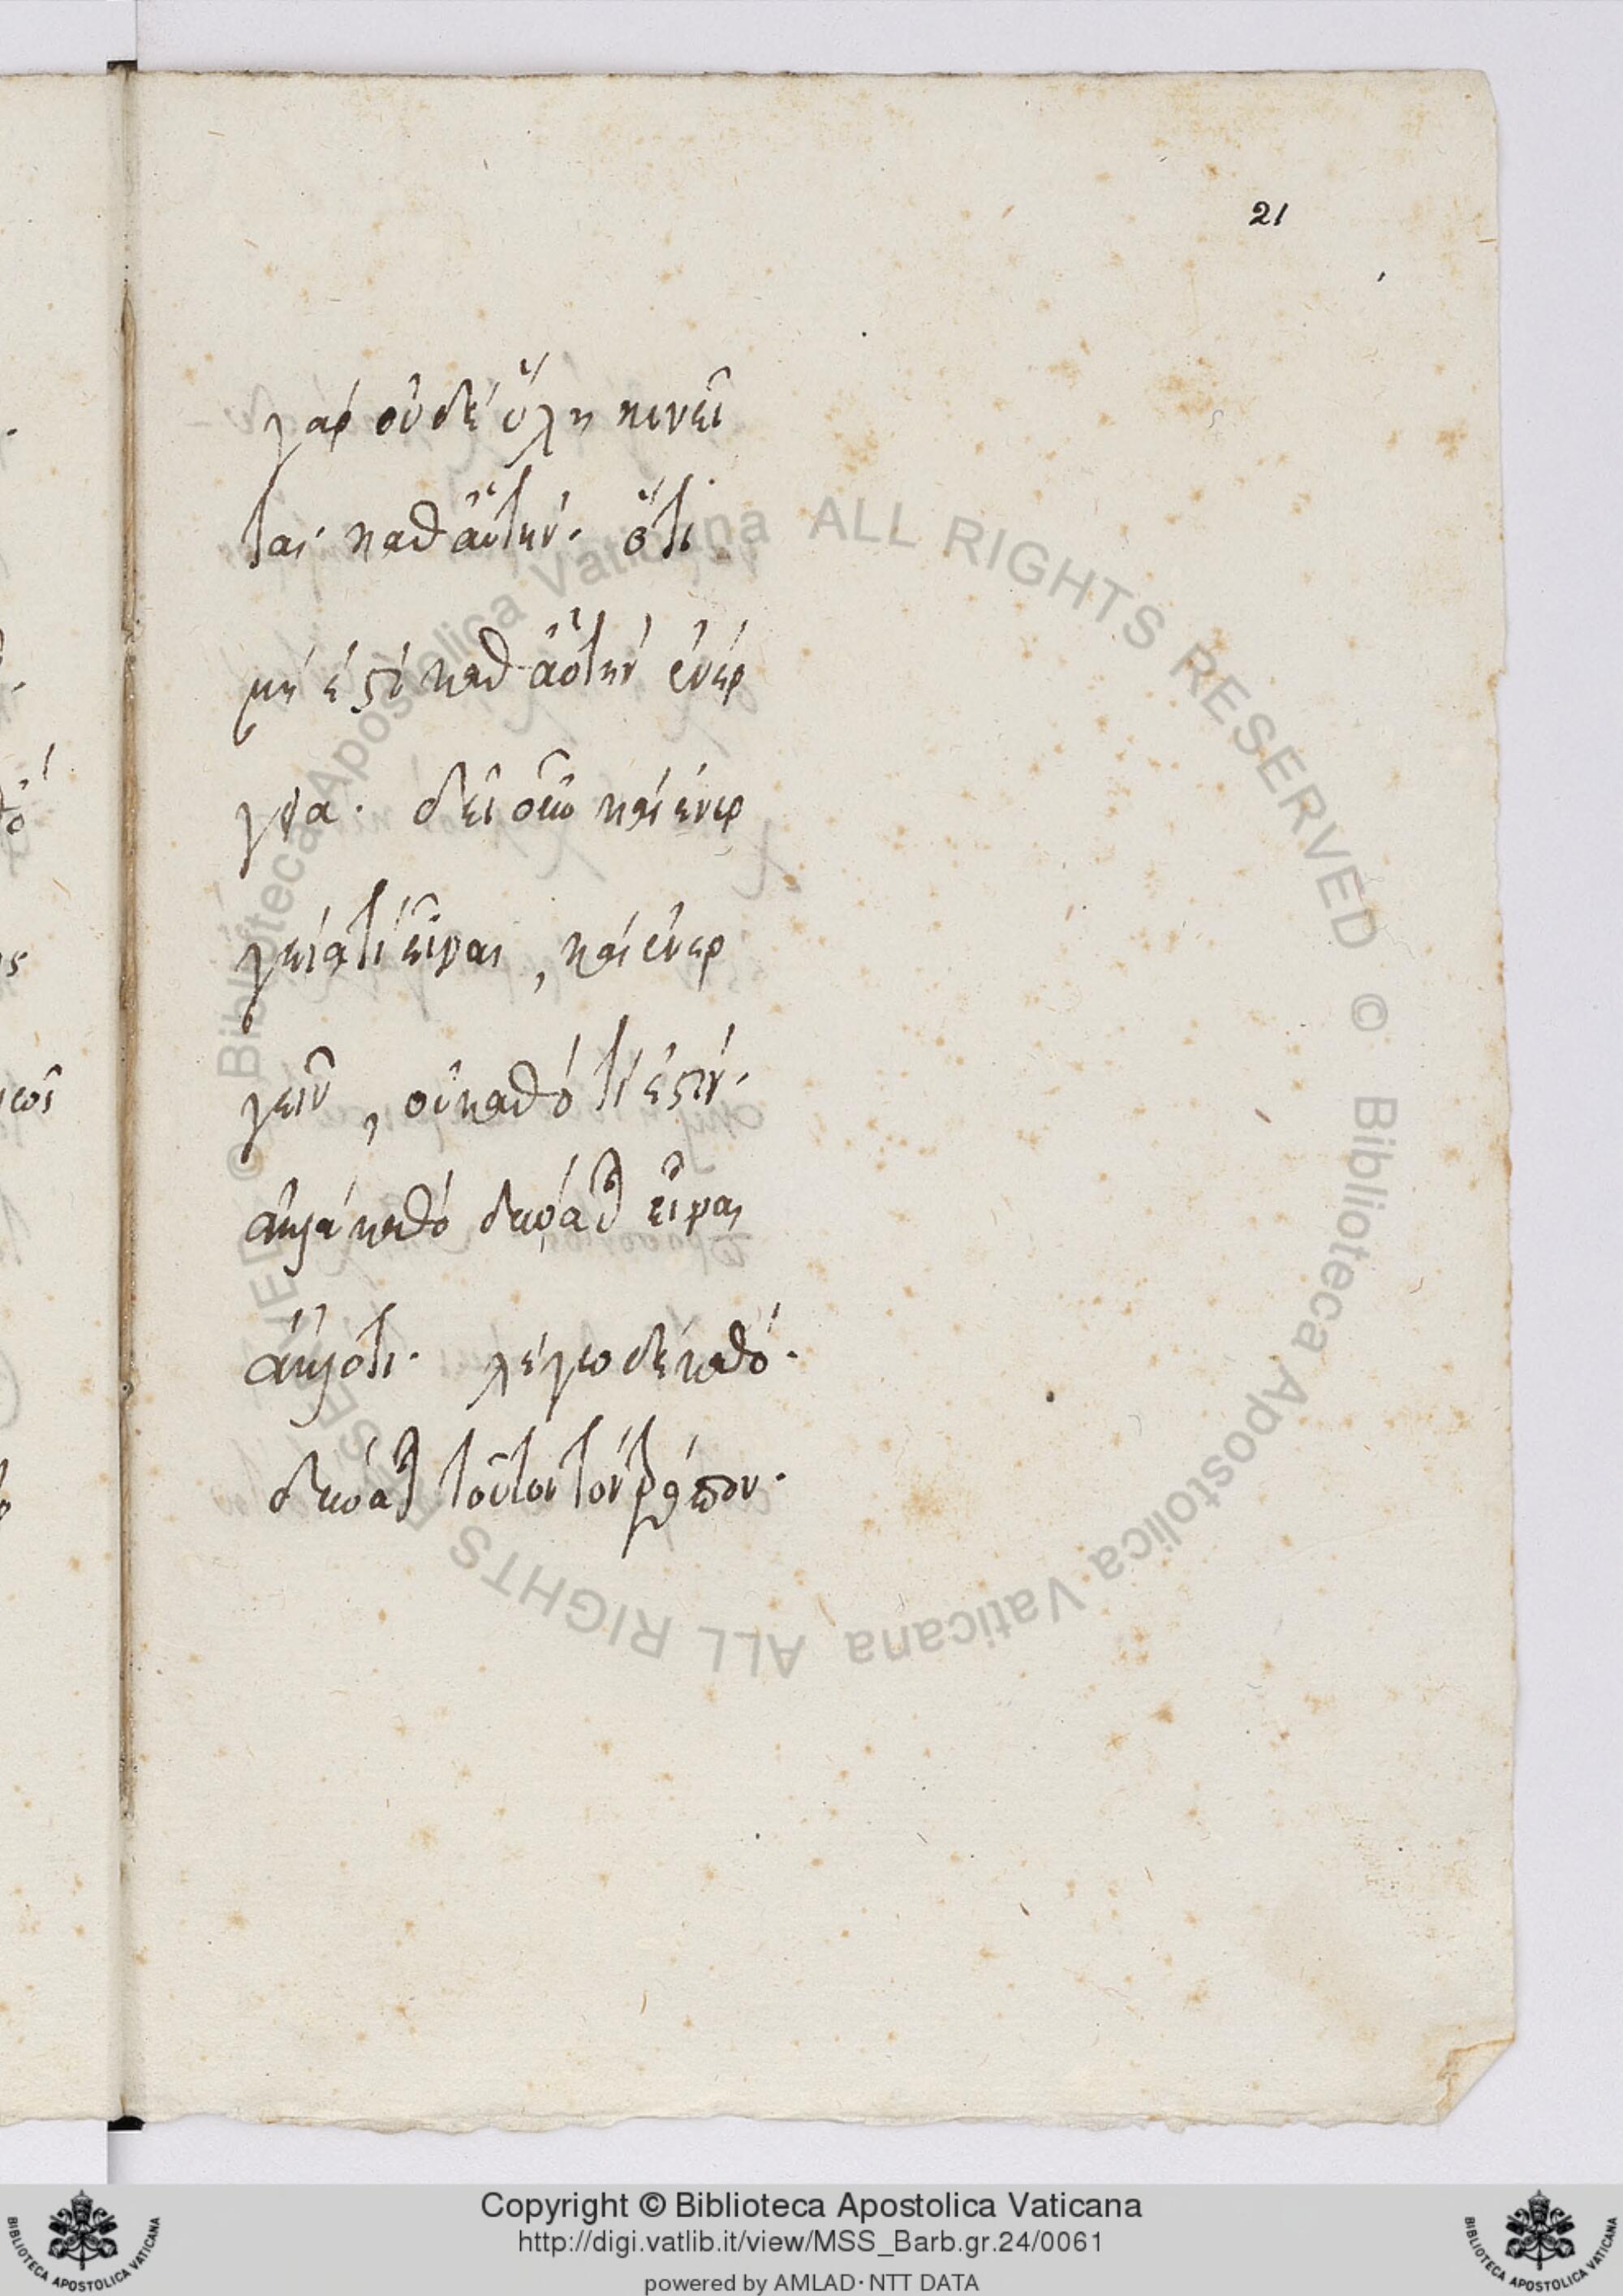 21
γὰρ οὐδὲ ὕλη κινεῖ
ται καθ αὑτήν· ὅτι
μή ἐστι καθ αὑτὴν ἐνέρ
γεια· δεῖ οὖν καὶ ἐνερ
γείᾳ τὶ εἶναι, καὶ ἐνερ
γεῖν, οὐ καθό τί ἐστιν·
ἀλλὰ καθὸ δυνάμει εἶναι
ἄλλό τι· λέγω δὲ καθό·
δυνάμει τοῦτον τὸν τρόπον·
© Biblioteca Apostolica Vaticana ALL RIGHTS RESERVED © Biblioteca Apostolica Vaticana ALL RIGHTS RESERVED
Copyright © Biblioteca Apostolica Vaticana
http://digi.vatlib.it/view/MSS_Barb.gr.24/0061
powered by AMLAD·NTT DATA
BIBLIOTECA APOSTOLICA VATICANA
BIBLIOTECA APOSTOLICA VATICANA